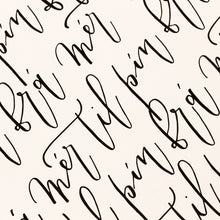 þín
Frá mér
mér Til þín
þín Frá
Til